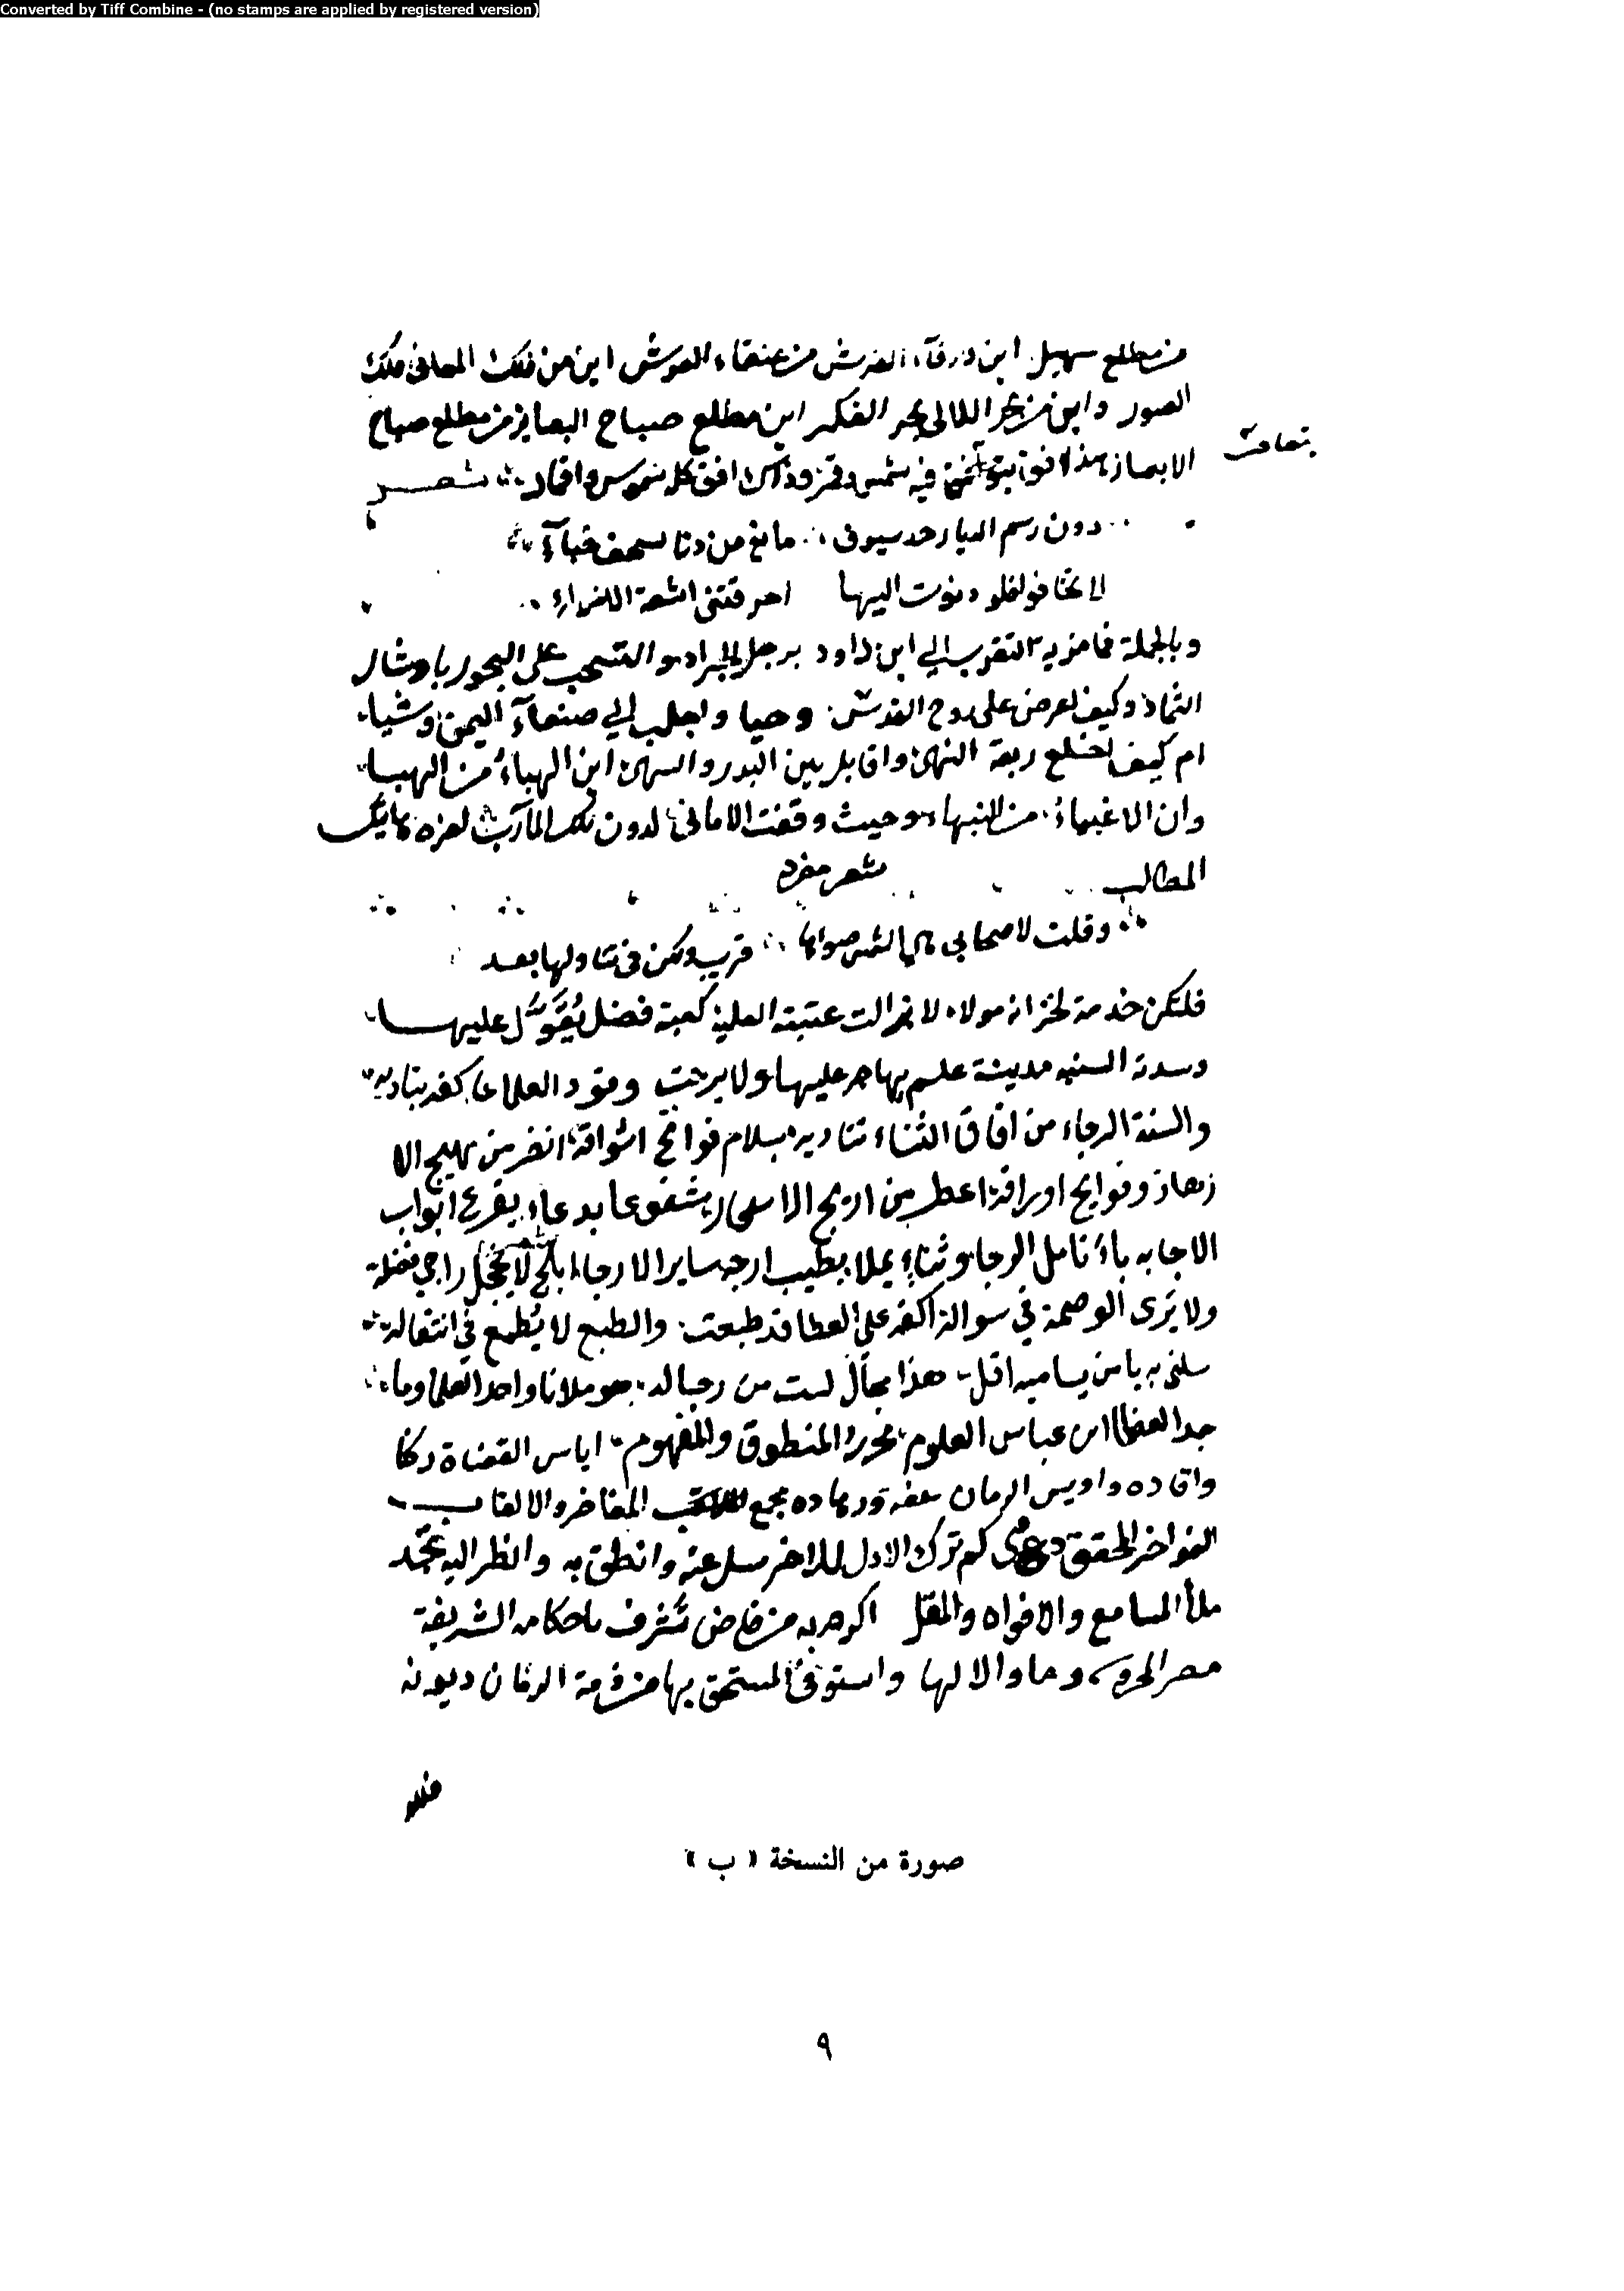 Converted by Tiff Combine - (no stamps are applied by registered version)
من مطلع سهيل اين ورقاء الفرش من عنقاء العرش اين من فلك المعانى فلك
الصور واين من بحر اللالى بحر الفكر اين مطلع صباح البصاير من مطلع صباح
الابصار هذا افق فيه شمس وقمر وذاك افق كله شموس واقمار شعر
دون رسم الديار حد سيوف مانع من دنا
لا تخافو لظلو دنوت اليها احرقتنى اشعة الاضواء
وبالجملة فما مزية التقرب الي ابن داود برجل الجراد والتسحب على البحور باوشال
الثماد وكيف اعرض على روح القدس وحيا واجلب الي صنعاء اليمن وشيا
ام كيف اخلع ربقة النهى واقابل بين البدر والسهى اين الهباء من
وان الاغبياء من النبهاء وحيث وقفت الامانى لدون تلك المآرب لعزة هاتيك
المطالب شعر مفرد
وقلت لاصحابى هي الشمس ضوءها قريب ولكن فى تناولها بعد
فلتكن خدمة لخزانة مولاه لا زالت عتبته العلية كعبة فضل يعول عليها
وسدته السنيه مدينة علم يهاجر عليها ولا برحت وفود العلا عاكفة بناديه
والسنة الرجاء من افاق الثناء تناديه بسلام فواتح اشواقه انضر من بهيج الا
زهار وفوايح اوراقه اعطر من اريج الاسحار مشفوعا بدعاء يقرع ابواب
الاجابه بانامل الرجا وثناء يملا بطيب ارجه ساير الارجاء ابلج لا يخجل راجى فضله
ولا يرى الوصمة في سواله اكفه على العطا قد طبعت والطبع لا يطمع في انتقاله
سلنى به يا من يساميه اقل هذا مجال لست من رجاله هو ملانا واحد العلما وما
جد العظما ابن عباس العلوم محرر المنطوق والمفهوم اياس القضاة ذكا
واقاده واويس الزمان عفة وزهاده مجمع المفاخر والالقاب
الفواخر المحقق كم ترك الاول للاخر سل عنه وانطق به وانظر اليه تجد
ملأ المسامع والافواه والمقل اكرم به من قاض تشرف باحكامه الشريفة
مصر المحروسه وما والا لها واستوفى المستحق بها من ذمة الزمان ديونه
صورة من النسخة « ب »
٩